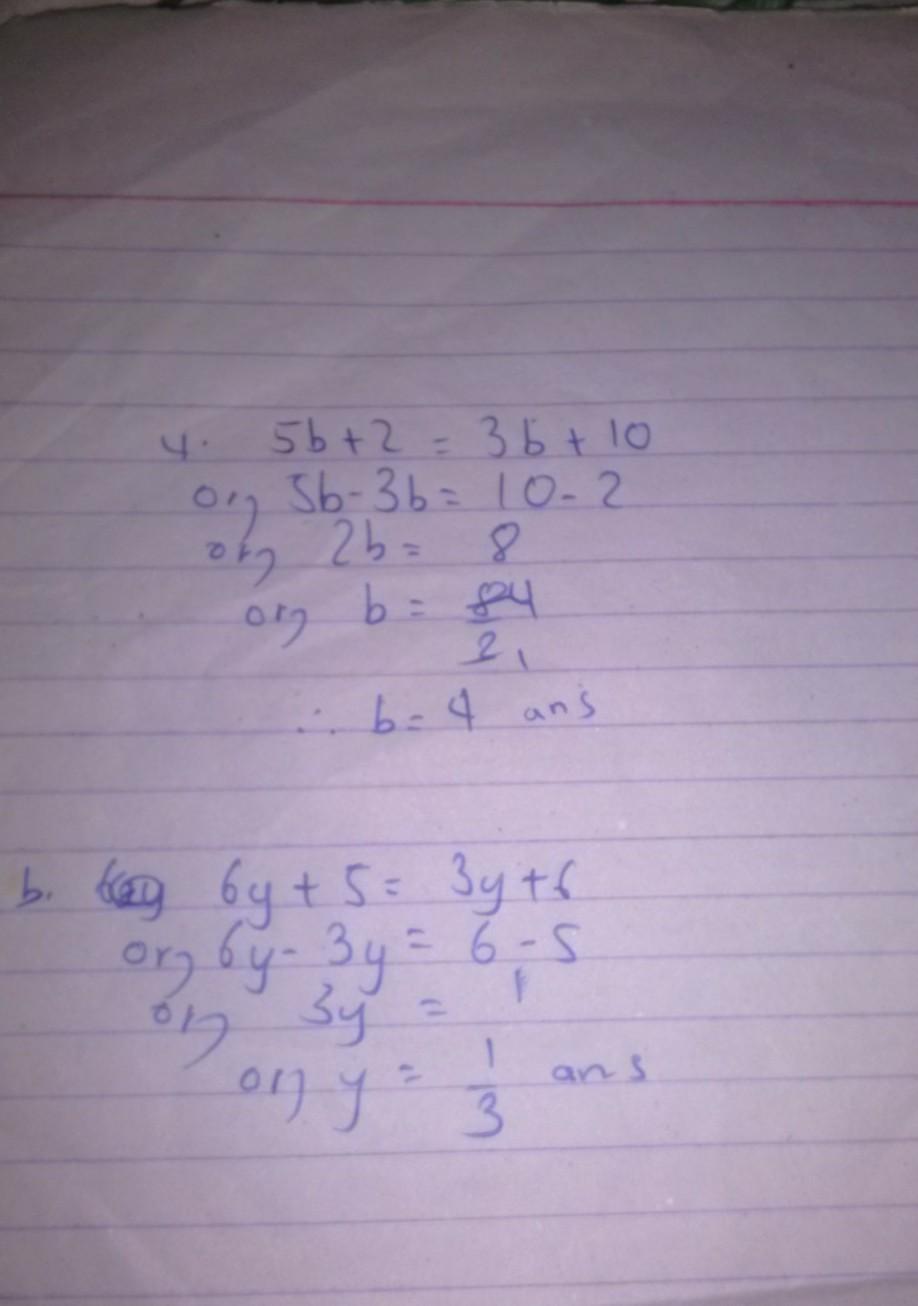 4. 5b+2 = 3b+10
or, 5b-3b= 10-2
or, 2b= 8
or, b= 84
2 1
∴ b=4 ans
b. 6y+5= 3y+6
or, 6y-3y= 6-5
or, 3y = 1
or, y= 1
3 ans